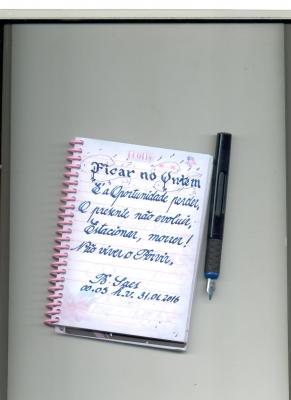 Ficar no Ontem
É a Oportunidade perder,
O presente não evoluir,
Estacionar, morrer!
Não viver o Porvir,
B. Saes
00.05 h. 31.01.2016